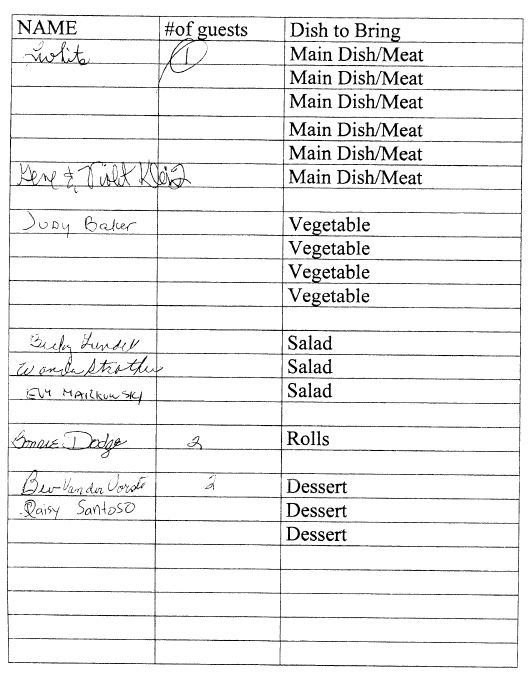 NAME #of guests Dish to Bring
1 Main Dish/Meat
Main Dish/Meat
Main Dish/Meat
Main Dish/Meat
Main Dish/Meat
Gene & Violet Main Dish/Meat
Judy Baker Vegetable
Vegetable
Vegetable
Vegetable
Becky Lundell Salad
Wanda Strother Salad
Salad
Bonnie Dodge 2 Rolls
Bev Vander Vorste 2 Dessert
Daisy Santoso Dessert
Dessert